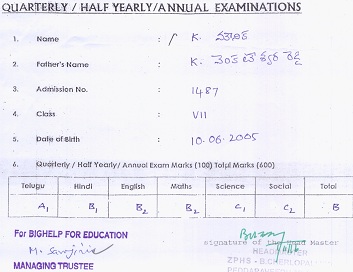 QUARTERLY / HALF YEARLY/ANNUAL EXAMINATIONS
1. Name : K.
2. Father's Name : K.
3. Admission No. : 1487
4. Class : VII
5. Date of Birth : 10-06-2005
6. Quarterly / Half Yearly/ Annual Exam Marks (100) Total Marks (600)
Telugu Hindi English Maths Science Social Total
A1 B1 B2 B2 C1 C2 B
For BIGHELP FOR EDUCATION
signature of the Head Master
HEADMASTER
MANAGING TRUSTEE